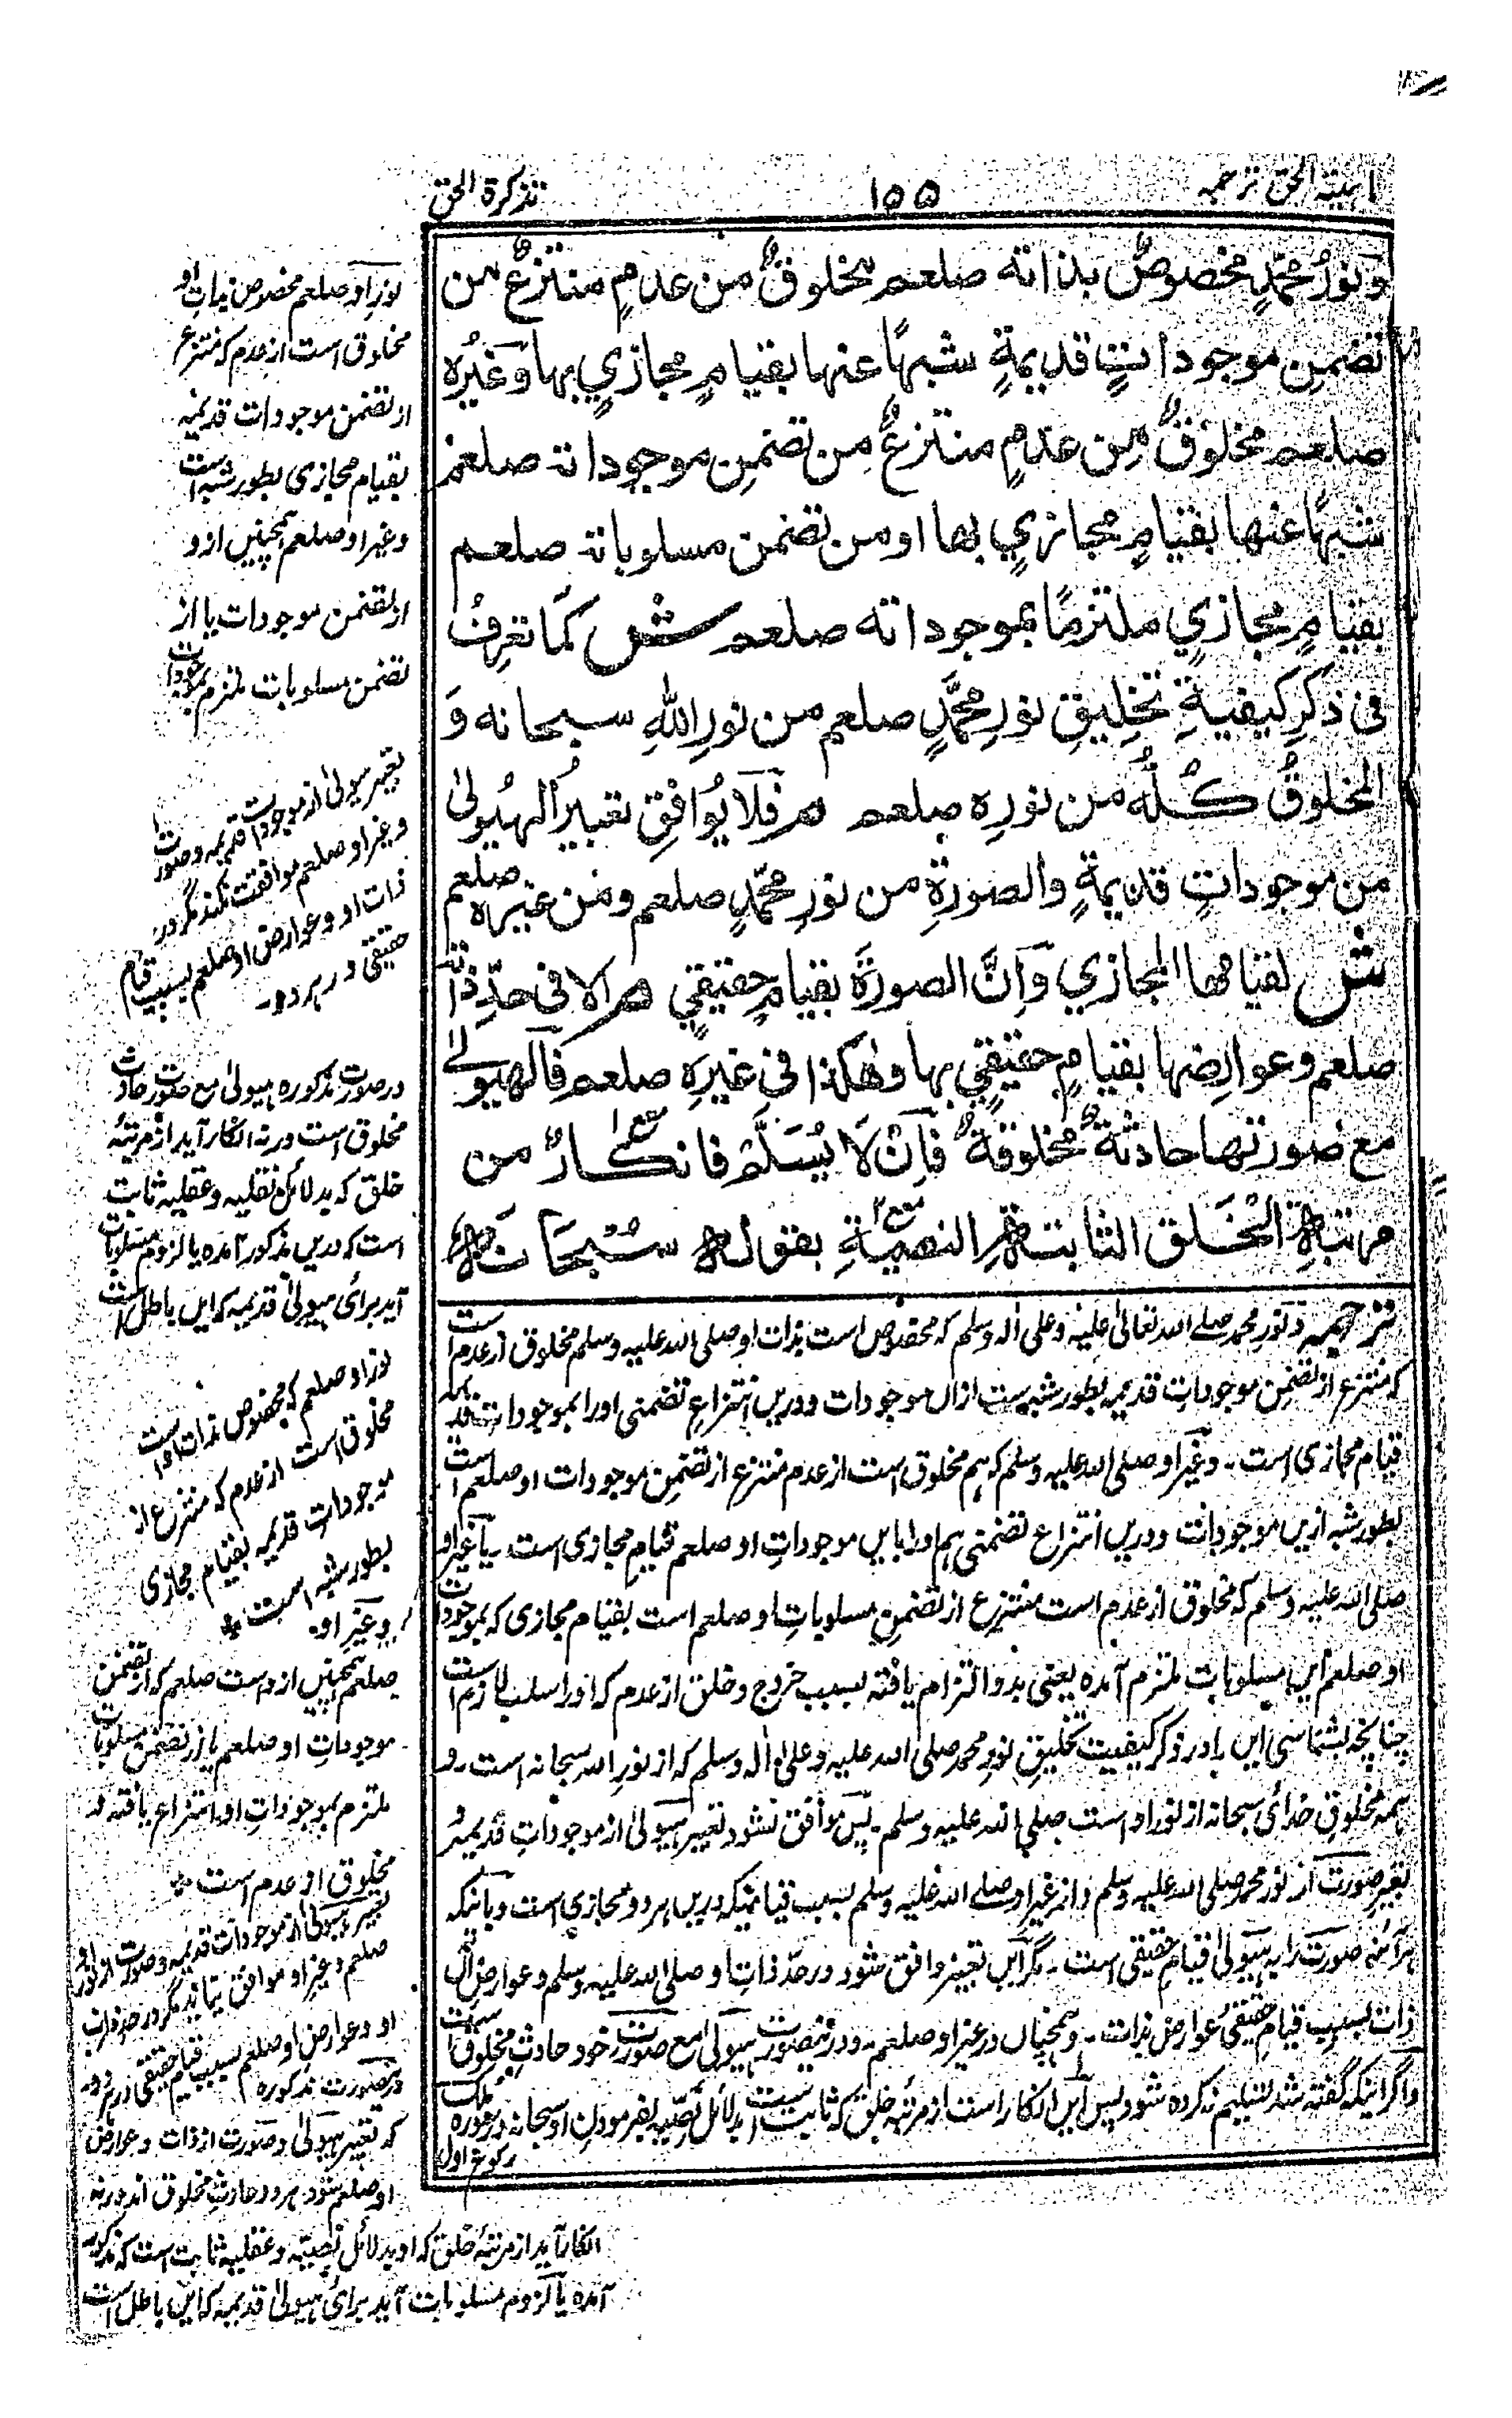 تذكرة الحق
١٥٥
الحق ترجمه
وَنورُ محمّدٍ مخصوصٌ بذاته صلعم مخلوقٌ من عدمٍ منتزعٌ من
تضمن موجوداتٍ قديمةٍ شبهًا عنها بقيامٍ مجازيٍ بها وغيرُه
صلعم مخلوقٌ مِن عدمٍ منتزعٌ مِن تضمنِ موجوداته صلعم
شبهًا عنها بقيامٍ مجازيٍ بها او من تضمن مسلوباته صلعم
بقيامٍ مجازيٍ ملتزمًا بموجوداته صلعم ش كمَا تعرِفُ
فى ذكرِ كيفيةِ تخليقِ نورِ محمَّدٍ صلعم من نورِ اللهِ سبحانه وَ
المخلوقُ كُلُّه من نورِه صلعم م فلَا يُوافِق تعبيرُ الهيُولى
من موجوداتٍ قديمةٍ والصورةِ من نورِ محمّدٍ صلعم ومن غيره صلعم
ش لقيامها المجازي وَاَنَّ الصورةَ بقيامٍ حقيقيٍ م الا فى حدِّ ذاته
صلعم وعوارِضها بقيامٍ حقيقيٍ بها وهٰكذا فى غيرِه صلعم فالهيولىٰ
مع صورتها حادثةٌ مخلوقةٌ فاِنْ لَا يُسَلَّمْ فانكارٌ من
مرتبةِ الخَلق الثابتةِ النصيّةِ بقوله سُبحَانَه
ترجمه ونور محمد صلے الله تعالىٰ عليه وعلى اٰله وسلم كه مخصوص است بذات او صلى الله عليه وسلم مخلوق از عدم است
كه منتزع از تضمنِ موجوداتِ قديمه بطور شبه ست ازاں موجودات ودريں انتزاعِ تضمنى اورا بموجودات قديمه
قيام مجازى است۔ وغير او صلى الله عليه وسلم كه هم مخلوق است از عدم منتزع از تضمنِ موجودات او صلعم است
بطور شبه ازيں موجودات ودريں انتزاع تضمنى هم اورا بايں موجوداتِ او صلعم قيامِ مجازى است۔ يا غير او
صلى الله عليه وسلم كه مخلوق از عدم است منتزع از تضمنِ مسلوباتِ او صلعم است بقيام مجازى كه بموجودات
او صلعم ايں مسلوبات ملتزم آمده يعنى بدو التزام يافته بسبب خروج وخلق از عدم كه اورا سلب لازم است
چنانچه بشناسى ايں را در ذكر كيفيت تخليقِ نورِ محمد صلى الله عليه وعلىٰ اٰله وسلم كه از نورِ الله سبحانه است۔ و
همه مخلوقِ خدائے سبحانه از نور او است صلى الله عليه وسلم۔ پس موافق نشود تعبير هيولىٰ از موجوداتِ قديمه و
تعبير صورت از نور محمد صلى الله عليه وسلم واز غير او صلے الله عليه وسلم بسبب قياميكه دريں هر دو مجازى است وبآنيكه
هر آئنه صورت را به هيولىٰ قيام حقيقى است۔ مگر ايں تعبير وافق شود در حدّ ذاتِ او صلى الله عليه وسلم وعوارضِ آں
ذات بسبب قيام حقيقى عوارض بذات۔ وهمچناں در غير او صلعم۔ ودرينصورت هيولىٰ مع صورت خود حادثِ مخلوق است
واگر اينكه گفته شد تسليم نه كرده شود پس ايں انكار است از مرتبه خلق كه ثابت است بدلائل نصيّه بفرمودنِ او سبحانه در سوره ملك
ركوع اول
نور او صلعم مخصوص بذات او
مخلوق است از عدم كه منتزع
از تضمن موجودات قديمه
بقيام مجازى بطور شبه است
وغير او صلعم همچنيں ازو
از تضمن موجودات يا از
تضمن مسلوبات ملتزم بموجودات
تعبير هيولىٰ از موجودات قديمه وصورت
وغير او صلعم موافقت نكند مگر در
ذات او وعوارض او صلعم بسبب قيام
حقيقى در هر دو۔
در صورت مذكوره هيولىٰ مع صورت حادث
مخلوق است ورنه انكار آيد از مرتبهٔ
خلق كه بدلائل نقليه وعقليه ثابت
است كه دريں مذكور آمده يا لزوم مسلوبات
آيد برائے هيولىٰ قديمه كه ايں باطل است
نور او صلعم كه مخصوص بذات او است
مخلوق است از عدم كه منتزع از
موجودات قديمه بقيام مجازى
بطور شبه است
وغير او۔
صلعم همچنيں ازوست صلعم كه از تضمن
موجوداتِ او صلعم يا از تضمن مسلوبات
ملتزم بموجوداتِ او انتزاع يافته
مخلوق از عدم است
تعبير هيولىٰ از موجودات قديمه وصورت از نور او
صلعم وغير او موافق نيايد مگر در حد ذات
او وعوارض او صلعم بسبب قيام حقيقى در هر دو۔
در صورت مذكوره
كه تعبير هيولىٰ وصورت از ذات وعوارض
او صلعم شود هر دو حادثِ مخلوق اند ورنه
انكار آيد از مرتبهٔ خلق كه او بدلائل نصيّه وعقليه ثابت است كه مذكور
آمده يا لزوم مسلوبات آيد برائے هيولىٰ قديمه كه ايں باطل است